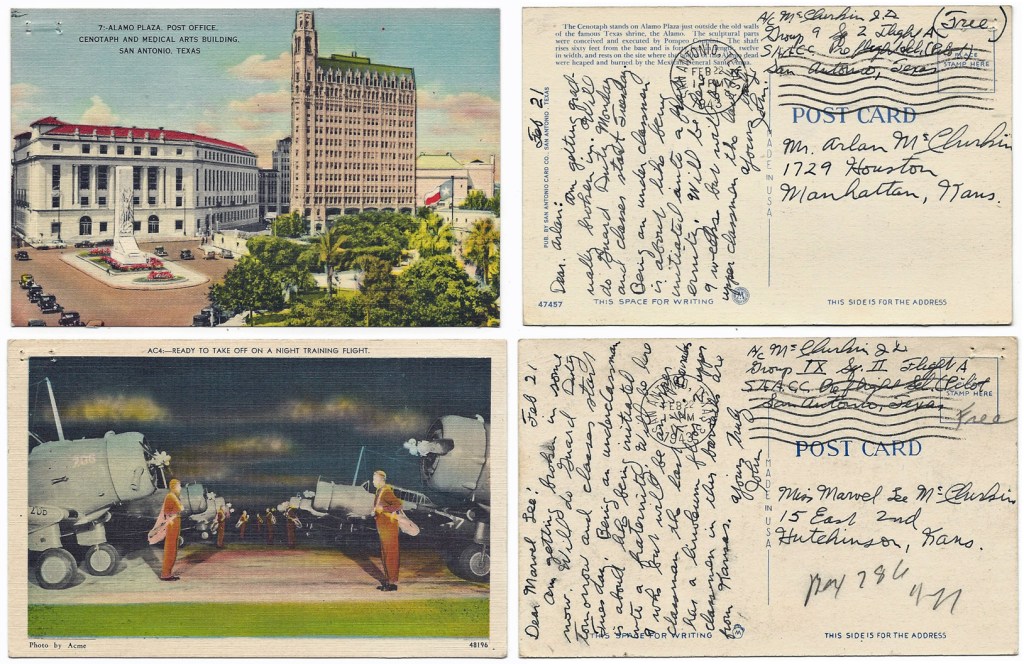 7:-ALAMO PLAZA, POST OFFICE,
CENOTAPH AND MEDICAL ARTS BUILDING,
SAN ANTONIO, TEXAS
The Cenotaph stands on Alamo Plaza just outside the old walls
of the famous Texas shrine, the Alamo. The sculptural parts
were conceived and executed by Pompeo
rises sixty feet from the base and is forty feet long, twelve
in width, and rests on the site where the Alamo dead
were heaped and burned by the Mexican General Santa Anna.
PUB. BY SAN ANTONIO CARD CO., SAN ANTONIO, TEXAS
Feb 21
Dear Arlan:
am getting grad-
ually broken in. Will
do Guard Duty Monday
and classes start Tuesday.
Being an under classman
is about like being
initiated into a frat-
ernity. Will be here
9 weeks but will be
upper classmen the last
Yours
John
A/C McClurkin J D (Free)
Group 9 Sq 2 Flight A
SAACC Preflight Sch (Pilot)
San Antonio, Texas
PLACE
STAMP HERE
FEB 22
POST CARD
MADE IN U.S.A.
Mr. Arlan McClurkin
1729 Houston
Manhattan, Kans.
47457
THIS SPACE FOR WRITING
THIS SIDE IS FOR THE ADDRESS
AC4:—READY TO TAKE OFF ON A NIGHT TRAINING FLIGHT.
206
206
Photo by Acme
48196
Feb 21
Dear Marvel Lee:
am getting broken in some
now. Will do Guard Duty
tomorrow and classes start
Tuesday. Being an underclassman
is about like being initiated
into a fraternity. Will be here
9 wks but will be an upper
classman the last Barracks
has a linoleum floor. 2 upper
classmen in this barracks are
from Kansas.
Yours Truly
John
A/C McClurkin J D
Group IX Sq. II Flight A
SAACC Preflight Sch (Pilot
San Antonio, Texas
STAMP HERE
Free
SAN ANTONIO,
FEB 22
1943
POST CARD
MADE IN U.S.A.
Miss Marvel Lee McClurkin
15 East 2nd
Hutchinson, Kans.
286
THIS SPACE FOR WRITING
THIS SIDE IS FOR THE ADDRESS